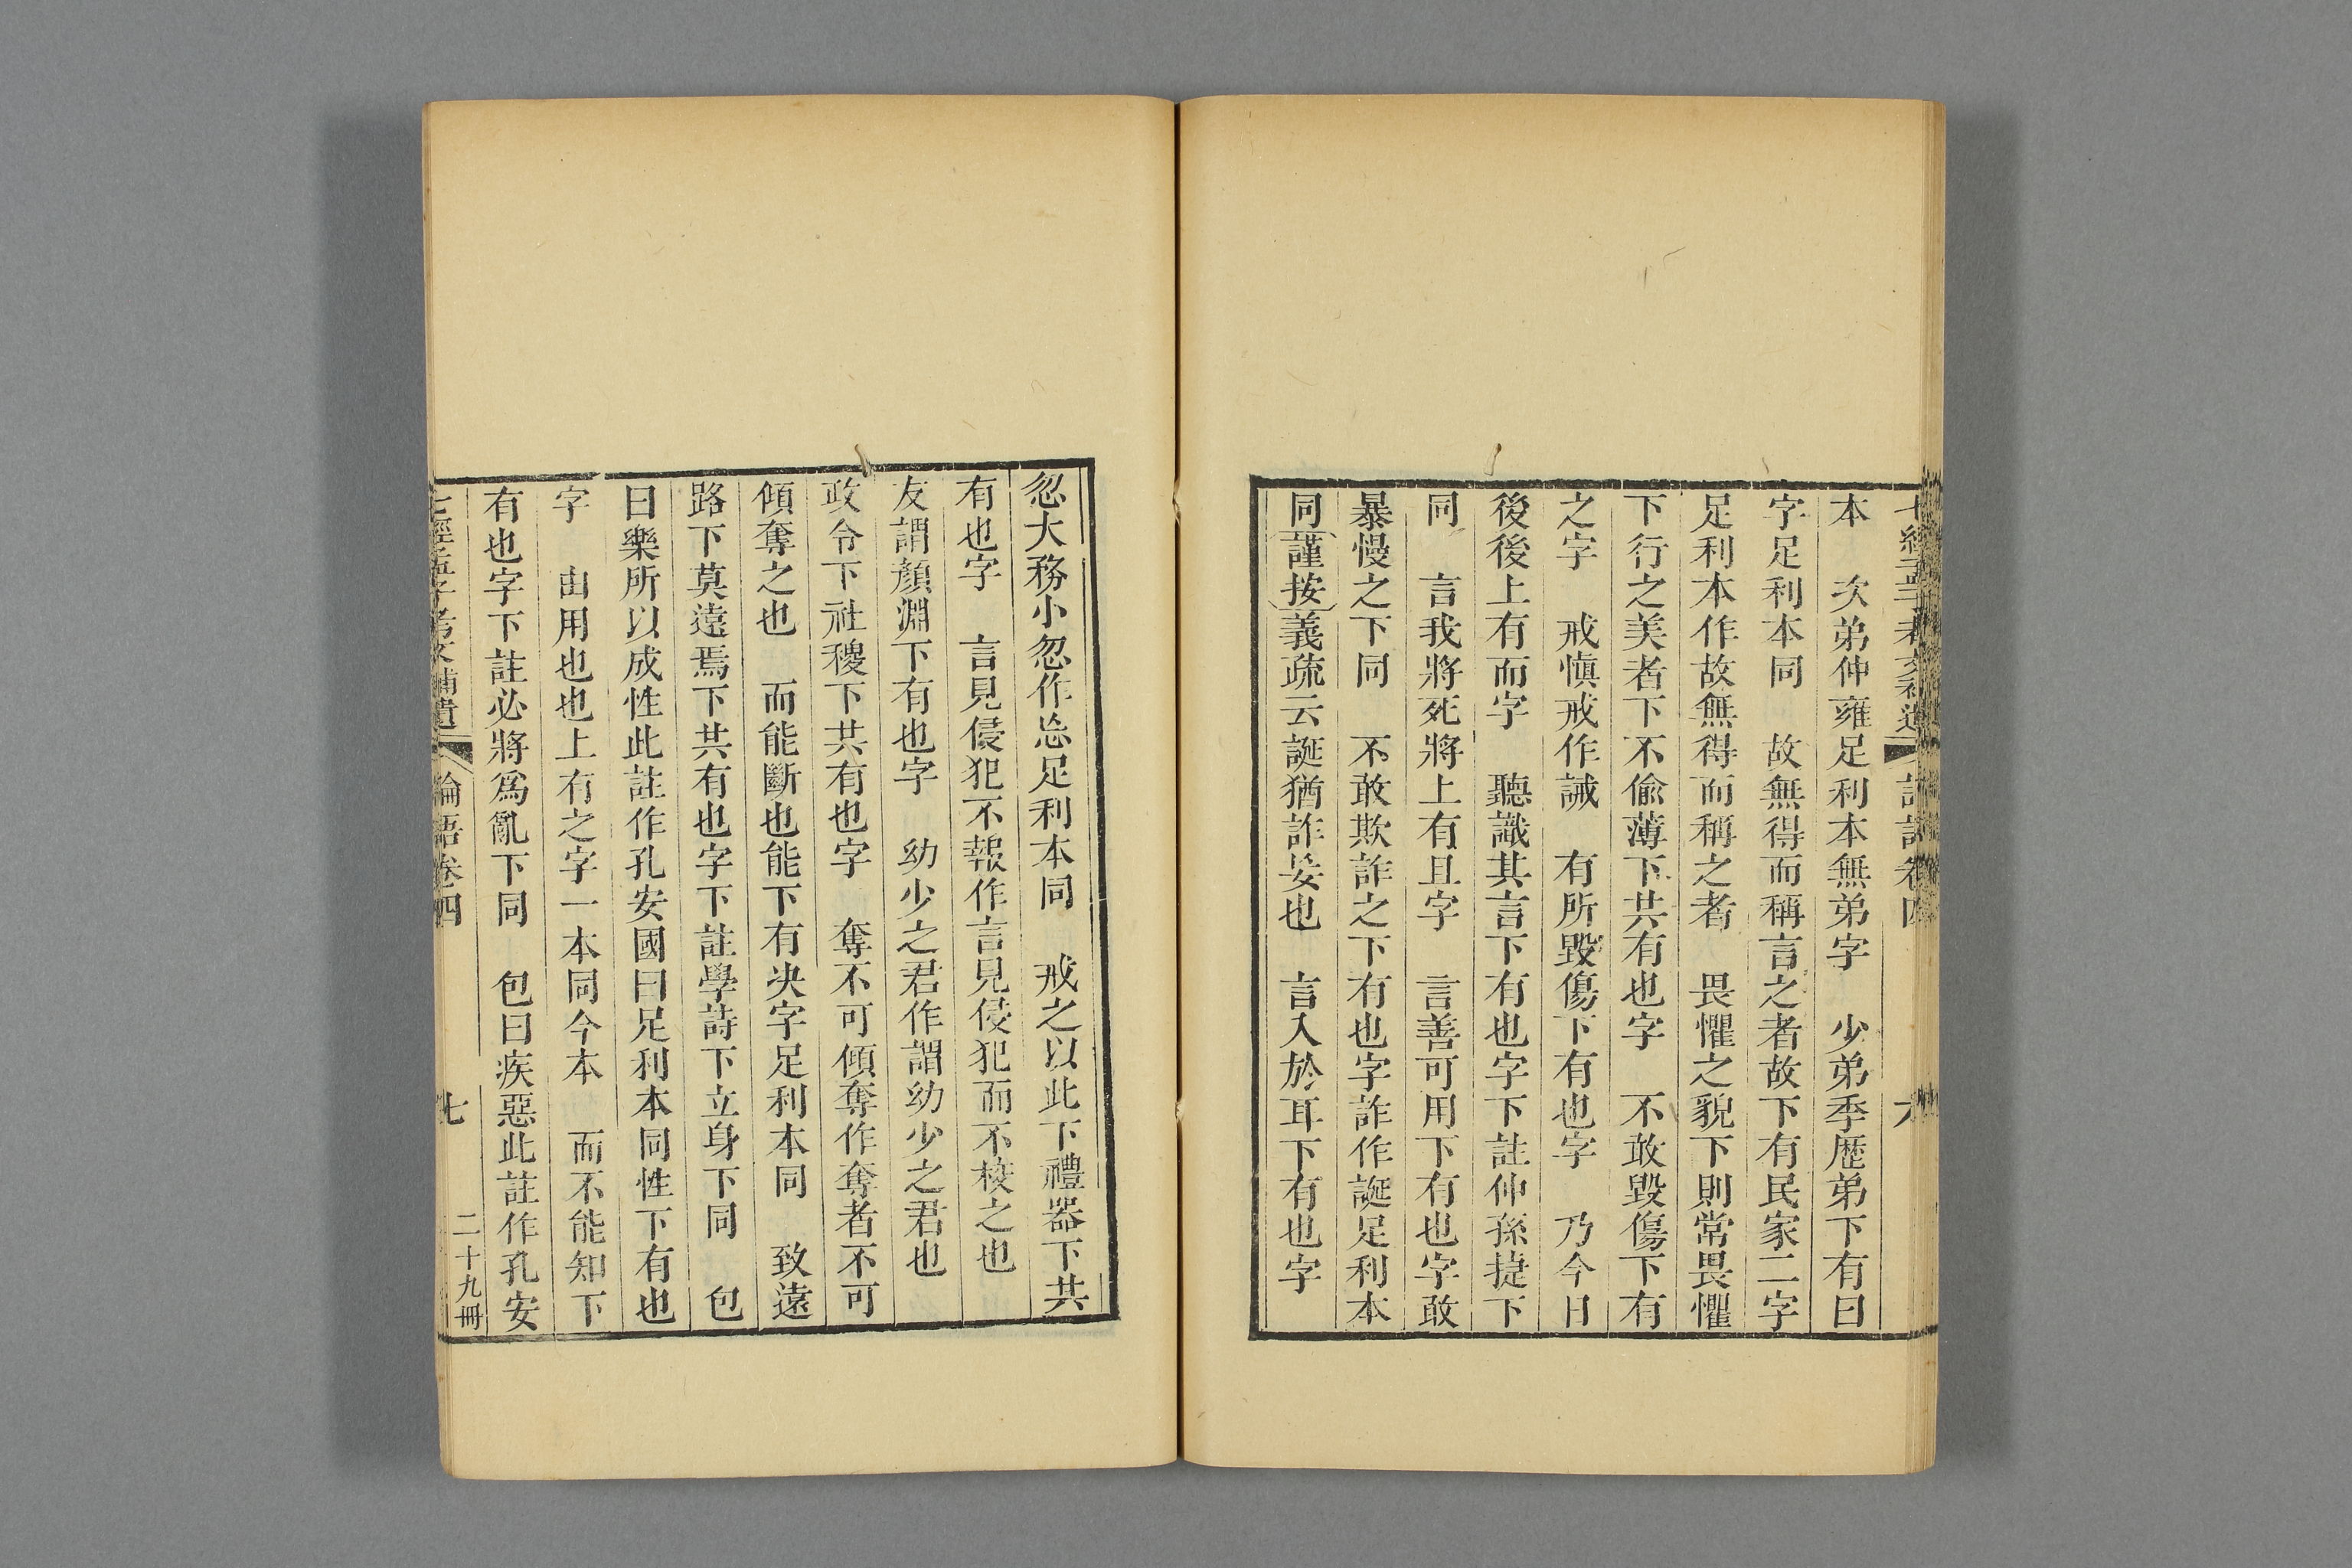 七經孟子考文補遺 論語卷四 六
本 次弟仲雍足利本無弟字 少弟季歷弟下有曰
字足利本同 故無得而稱言之者故下有民家二字
足利本作故無得而稱之者 畏懼之貌下則常畏懼
下行之美者下不偸薄下共有也字 不敢毀傷下有
之字 戒愼戒作誡 有所毀傷下有也字 乃今日
後後上有而字 聽識其言下有也字下註仲孫㨗下
同 言我將死將上有且字 言善可用下有也字敢
暴慢之下同 不敢欺詐之下有也字詐作誕足利本
同謹按義疏云誕猶詐妄也 言入於耳下有也字
忽大務小忽作忘足利本同 戒之以此下禮器下共
有也字 言見侵犯不報作言見侵犯而不校之也
友謂顏淵下有也字 幼少之君作謂幼少之君也
政令下社稷下共有也字 奪不可傾奪作奪者不可
傾奪之也 而能斷也能下有決字足利本同 致遠
路下莫遠焉下共有也字下註學詩下立身下同 包
曰樂所以成性此註作孔安國曰足利本同性下有也
字 由用也也上有之字一本同今本 而不能知下
有也字下註必將爲亂下同 包曰疾惡此註作孔安
七經孟子考文補遺 論語卷四 七 二十九冊